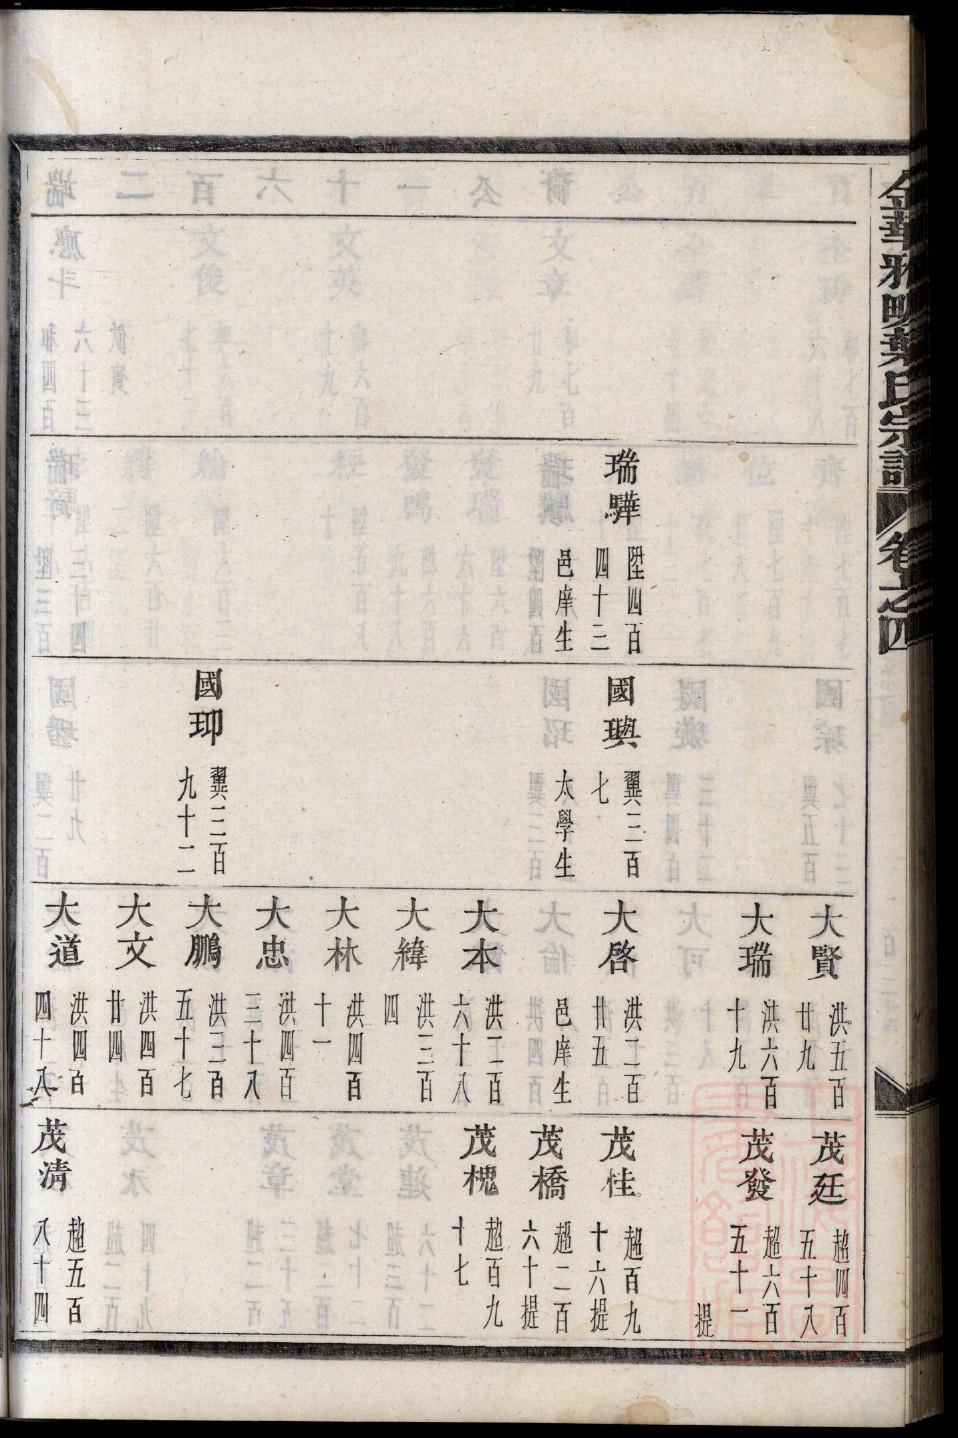 金華雅畈葉氏宗譜 卷之四
瑞驊 陞四百四十三 邑庠生
國璵 翼三百七 太學生
國珋 翼三百九十二
大賢 洪五百廿九
大瑞 洪六百十九
大啓 洪二百廿五 邑庠生
大本 洪二百六十八
大緯 洪三百四
大林 洪四百十一
大忠 洪四百三十八
大鵬 洪三百五十七
大文 洪四百廿四
大道 洪四百四十八
茂廷 超四百五十八
茂發 超六百五十一 提
茂桂 超百九十六提
茂橋 超二百六十提
茂槐 超百九十七
茂清 超五百八十四